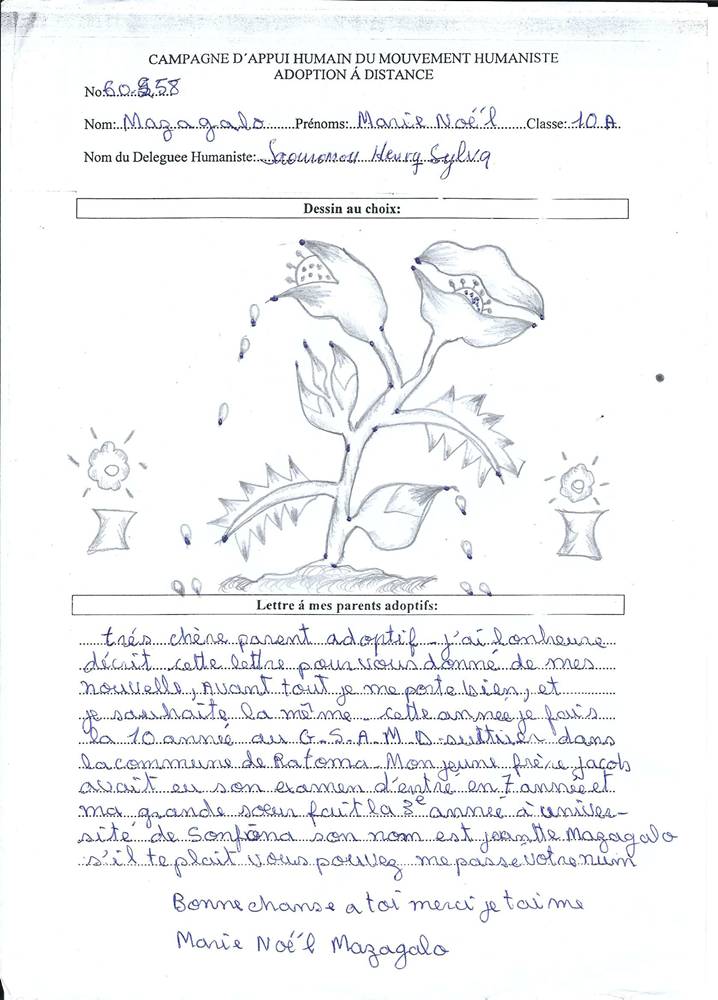 CAMPAGNE D´APPUI HUMAIN DU MOUVEMENT HUMANISTE
ADOPTION Á DISTANCE
No:60.958
Nom: Mazagalo Prénoms: Marie Noé´l Classe: 10 A
Nom du Deleguee Humaniste: Henry Sylva
Dessin au choix:
Lettre á mes parents adoptifs:
trés chère parent adoptif - j'ai lonheure
décrit cette lettre pour vous donné de mes
nouvelle, Avant tout je me porte bien, et
je souhaite la même - cette année je fais
la 10 année au G-S-A-M D-suttier dans
la commune de Ratoma - Mon jeune frère jacob
avait eu son examen d'entré en 7 année et
ma grande sœur fait la 3e année à univer-
sité de Sonfona son nom est jeantte Mazagalo
s'il te plait vous pouvez me passé votre num
Bonne chanse a toi merci je t'aime
Marie Noé´l Mazagalo